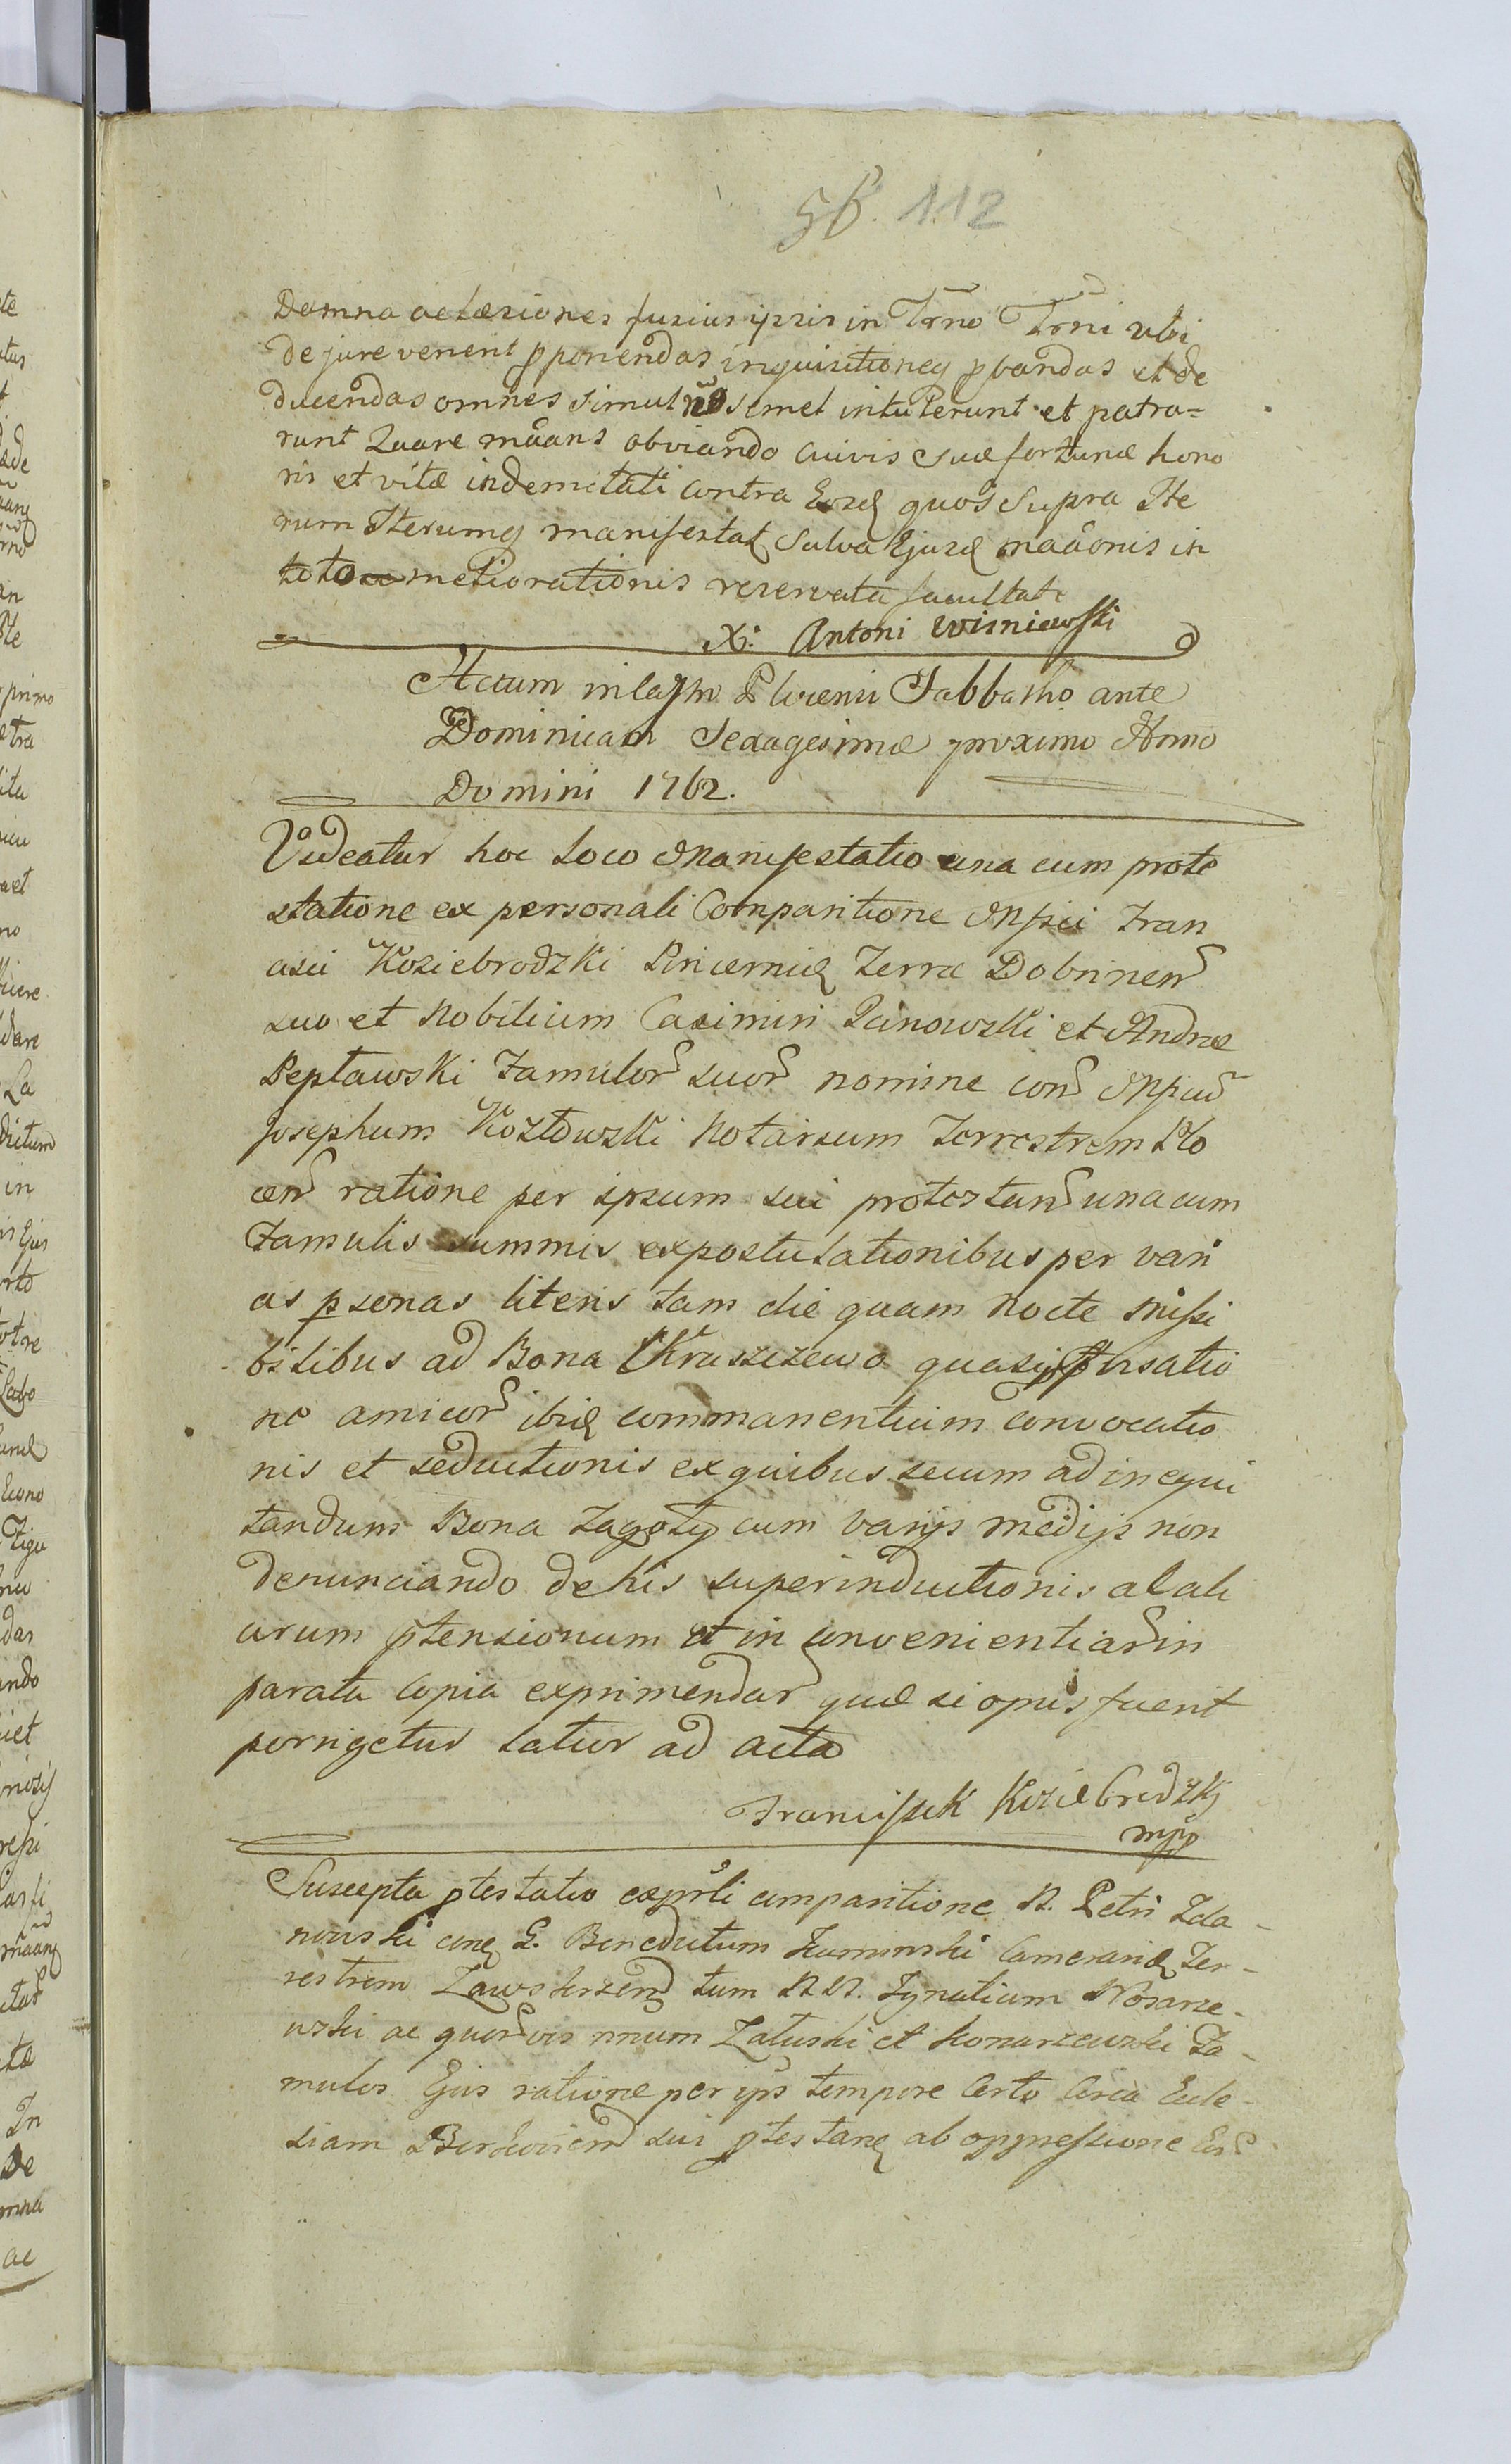 56. 112
Damna ac læsiones fusius ipsis in Trno Trni ubi
de jure venerit pponendas inquisitioneq pbandas et de
ducendas omnes simul nō semel intulerunt et patra=
runt Quare mãans obviando cuivis suæ fortunæ hono
ris et vitæ indemitati contra Eosd quos supra Ite
rum Iterumq manifestat salva Ejusd maãonis in
toto meliorationis reservata facultate
X: Antoni Wisniewski
Actum in Castro Plocensi Sabbatho ante
Dominicam Sexagesimæ proximo Anno
Domini 1762.
Videatur hoc Loco Manifestatio una cum prote
statione ex personali Comparitione Mfici Fran
cisci Koziebrodzki Pincernæ Terræ Dobrinen
suo et Nobilium Casimiri Panowski et Andreæ
Peptawski Famulor suor nomine con Mfcum
Josephum Kozłowski Notarium Terrestrem Plo
cen ratione per ipsum sui protestan una cum
Famulis summis expostulationibus per vari
as psonas literis tam die quam nocte missi
bilibus ad Bona Kraszezewo quasi
ne amicor ibid commanentium convocatio
nis et seductionis ex quibus secum ad inequi
tandum Bona Zagoty cum varijs medijs non
denunciando de his superinductionis al ali
arum ptensionum et in convenientiar in
parata Copia exprimendar quæ si opus fuerit
porrigetur latior ad acta
Franciszek Koziebrodzki
mpp
Suscepta ptestatio ex prsli comparitione N. Petri Zda-
nowski con G. Benedictum Kaminski Camerarium Ter-
restrem Zawskrzen tum N.N. Ignatium Nosarze-
wski ac quorvis nnum Zatuski et Konarzewski Fa-
mulos Ejus ratione per ips tempore Certo Circa Eccle-
siam sui ptestan ab oppressione Eor